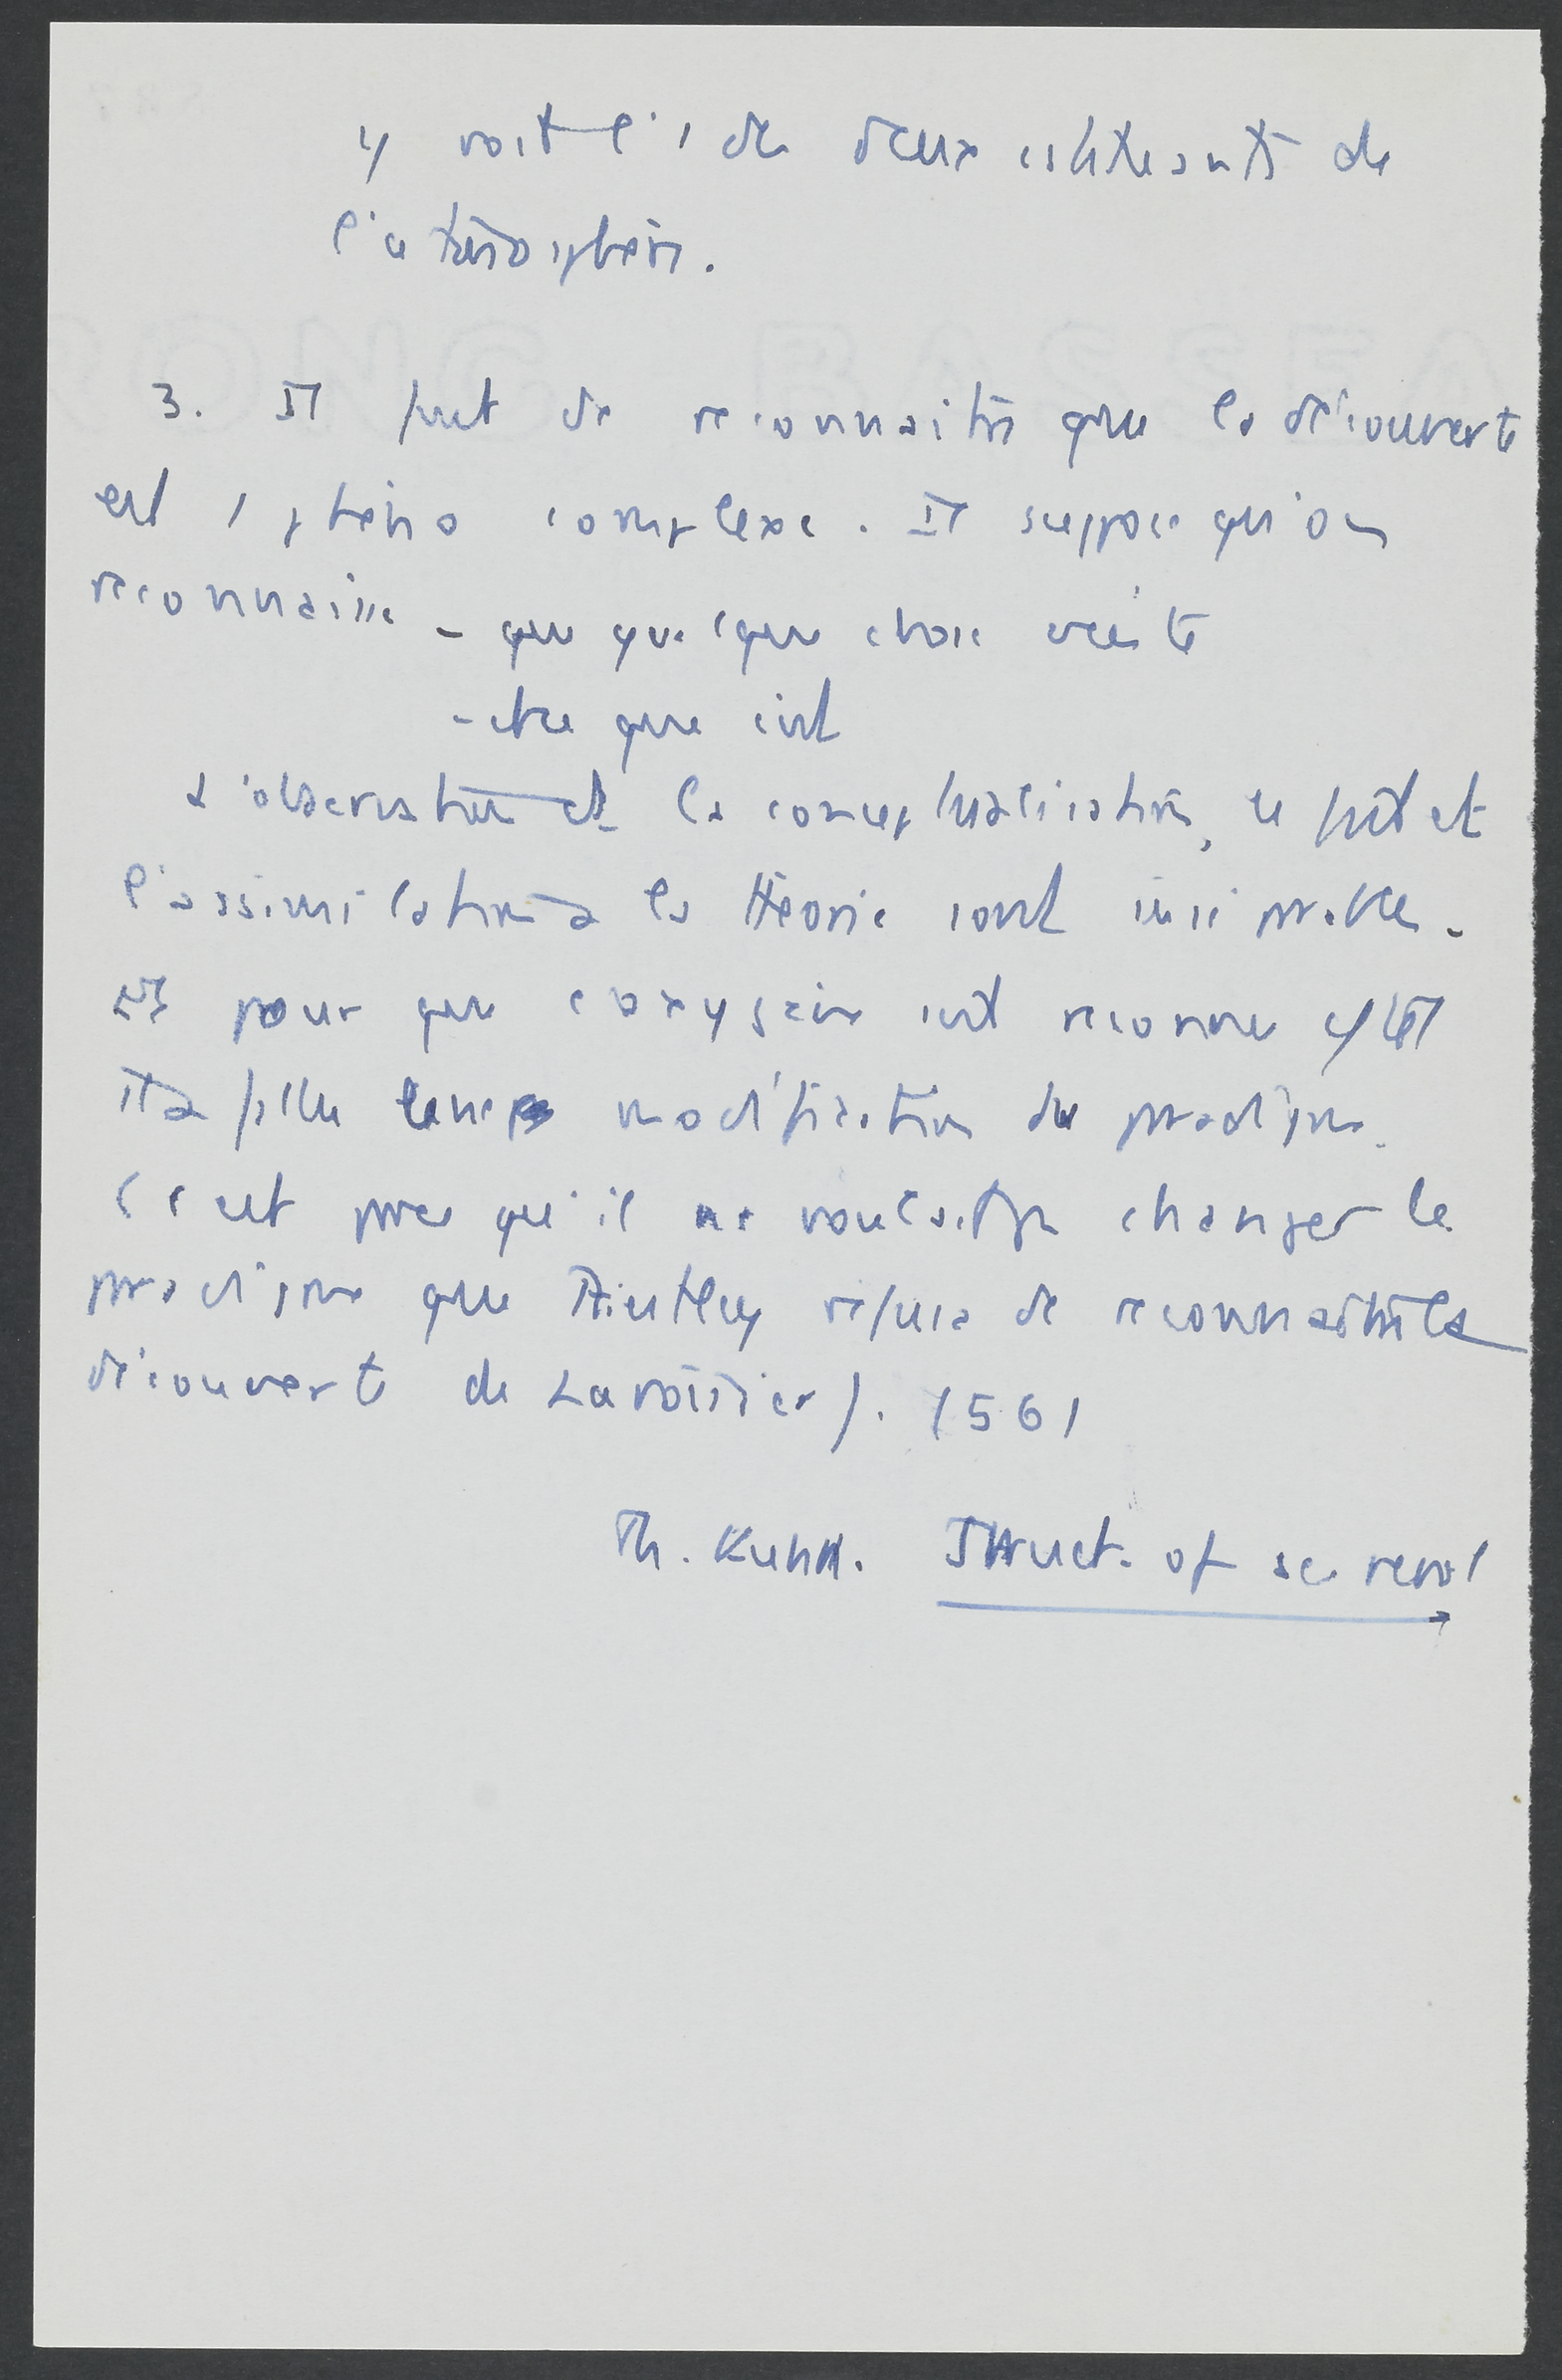 y voit l'1 des deux constituants de
l'atmosphère.
3. Il faut dc reconnaître que la découverte
est 1 phéno complexe. Il suppose qu'on
reconnaisse - que quelque chose existe
- et ce que c'est
L'observation et la conceptualisation, le fait et
l'assimilation à la théorie sont inséparables.
Et pour que l'oxygène soit reconnu
il a fallu une modification du paradigme.
(C'est parce qu'il ne voulait pas changer le
paradigme que Priestley refusa de reconnaître la
découverte de Lavoisier). (56)
Th. Kuhn. Struct. of sc. revol